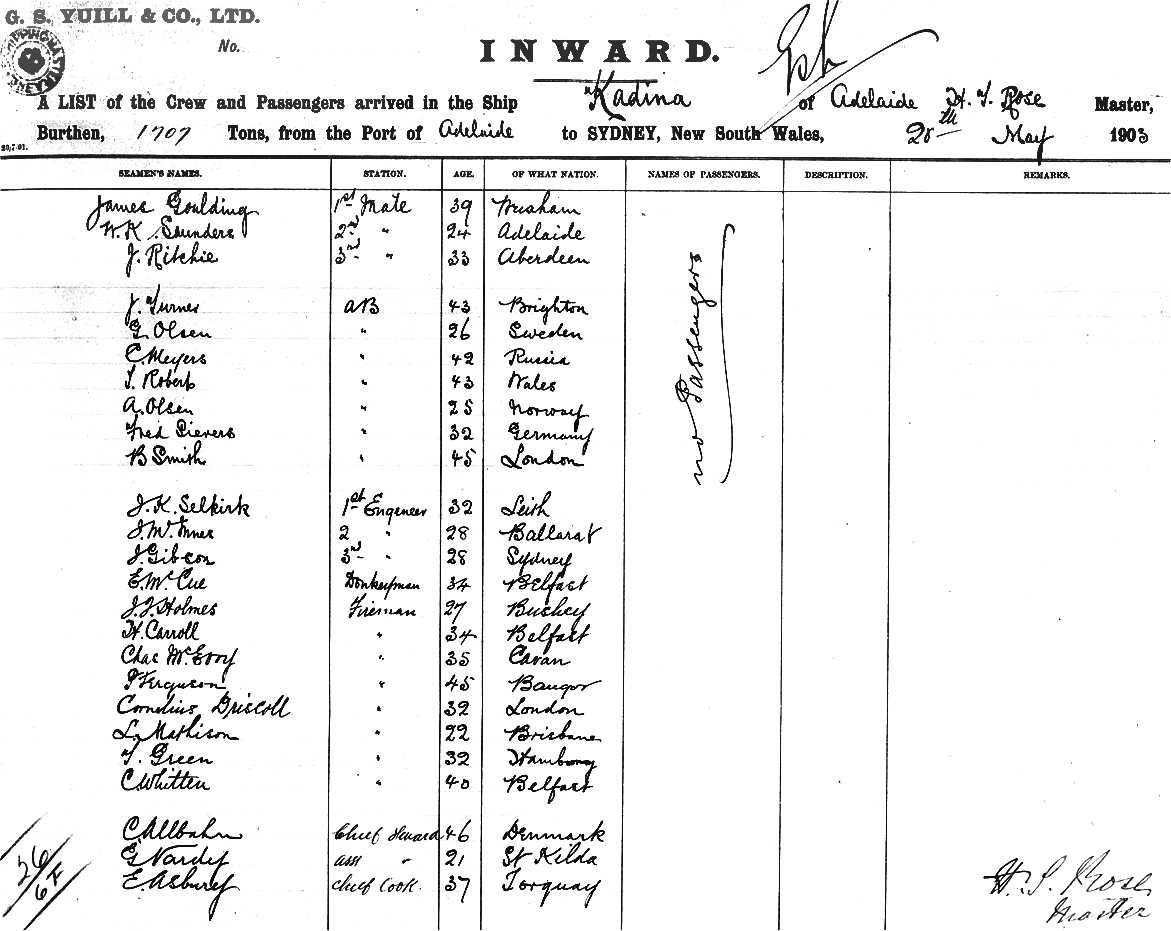 G. S. YUILL & CO., LTD.
No.
INWARD.
A LIST of the Crew and Passengers arrived in the Ship Kadina of Adelaide H. S. Rose Master,
Burthen, 1707 Tons, from the Port of Adelaide to SYDNEY, New South Wales, 28th May 1903
SEAMEN'S NAMES. STATION. AGE. OF WHAT NATION. NAMES OF PASSENGERS. DESCRIPTION. REMARKS.
James Goulding 1st Mate 39
W. K. Saunders 2nd " 24 Adelaide
J. Ritchie 3rd " 33 Aberdeen
J. Turner AB 43 Brighton
G. Olsen " 26 Sweden
C. Meyers " 42 Russia
T. Roberts " 43 Wales
A. Olsen " 25 Norway
Fred Sievers " 32 Germany
B Smith " 45 London
no Passengers
J. K. Selkirk 1st Engeneer 32 Leith
J. Mc Innes 2 " 28 Ballarat
J. Gibson 3rd " 28 Sydney
E. Mc Cue Donkeyman 34 Belfast
J. J. Holmes Fireman 27 Bushey
H. Carroll " 34 Belfast
Chas McEvoy " 35 Cavan
P Ferguson " 45 Bangor
Cornelius Driscoll " 32 London
L. Mathison " 22 Brisbane
T. Green " 32 Hamburg
C Whitten " 40 Belfast
C Allbahn Chief Steward 46 Denmark
G Vardy ass " 21 St Kilda
E. Asbury Chief Cook 37 Torquay
26
6F
H. S. Rose
Master